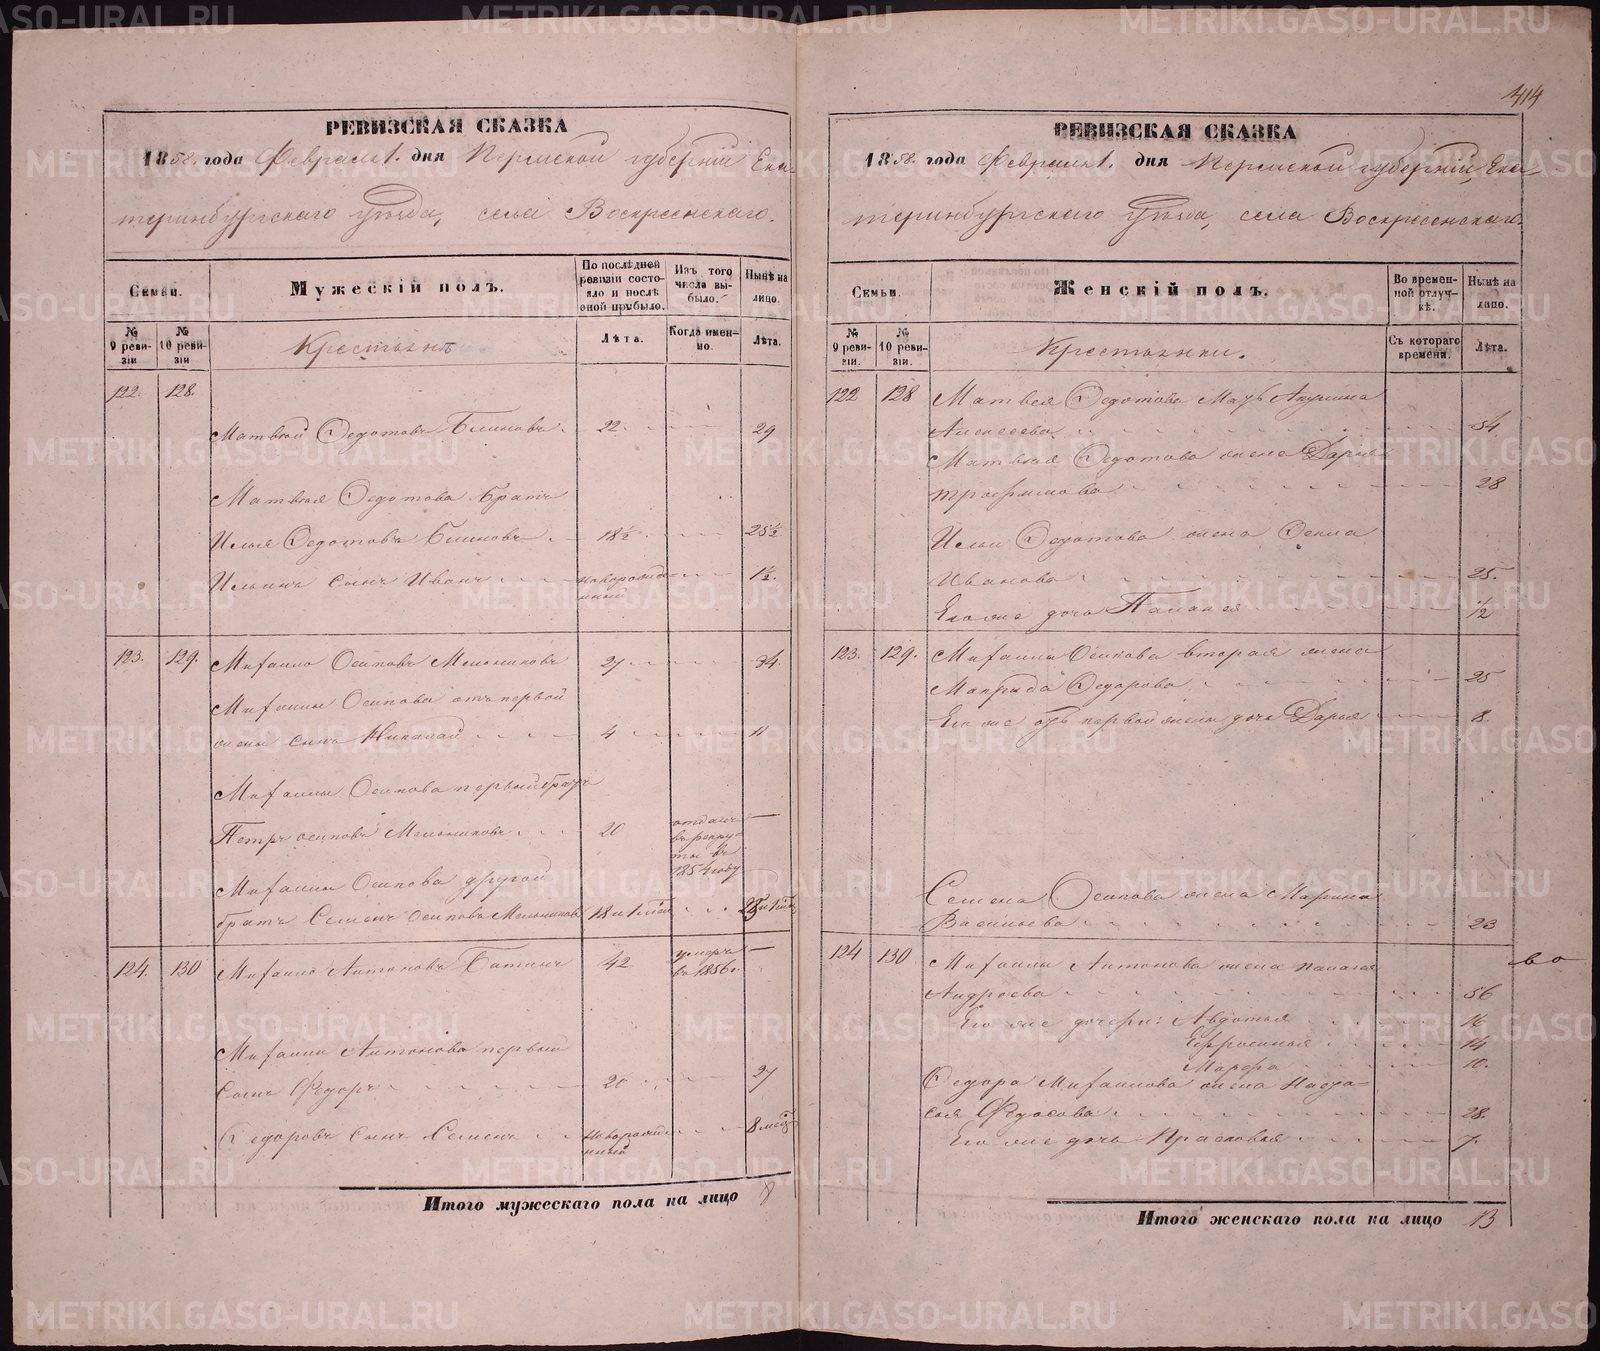 414
РЕВИЗСКАЯ СКАЗКА
1858. года Февраля 1. дня Пермской губернiи Ека-
теринбургскаго уѣзда, села Воскресенскаго.
Семьи.
Мужескiй полъ.
По послѣдней ревизiи состояло и послѣ оной прибыло.
Изъ того числа выбыло.
Нынѣ на лицо.
№ 9 ревизiи
№ 10 ревизiи
Крестьянѣ
Лѣта.
Когда именно.
Лѣта.
122. 128.
Матвѣй Ѳедотовъ Блиновъ. 22. 29
Матвѣя Ѳедотова братъ
Илья Ѳедотовъ Блиновъ 18½ 25½
Ильинъ сынъ Иванъ новорожденный 1½.
123. 129. Михаило Осиповъ Мельниковъ 27 34.
Михаилы Осипова отъ первой
жены сынъ Николай 4 11
Михаилы Осипова первый братъ
Петръ Осиповъ Мельниковъ 20 отданъ въ рекруты въ 1854 году
Михаилы Осипова другой
братъ Семенъ Осиповъ Мельниковъ
124. 130 Михаило Антоновъ Батинъ 42 умеръ въ 1856 г.
Михаилы Антонова первый
сынъ Федоръ 20 27
Ѳедоровъ сынъ Семенъ новорожденный 8 мес.
Итого мужескаго пола на лицо 8
РЕВИЗСКАЯ СКАЗКА
1858. года Февраля 1. дня Пермской губернiи, Ека-
теринбургскаго уѣзда, села Воскресенскаго.
Семьи.
Женскiй полъ.
Во временной отлучкѣ.
Нынѣ на лицо.
№ 9 ревизiи.
№ 10 ревизiи.
Крестьянки.
Съ котораго времени.
Лѣта.
122 128 Матвея Ѳедотова мать Акулина
Алексеева 54
Матвѣя Ѳедотова жена Дарья
Трофимова 28
Ильи Ѳедотова жена Ѳекла
Иванова 25.
Его же дочь Палагея ½
123. 129. Михаилы Осипова вторая жена
Макрида Ѳедорова 25
Его же отъ первой жены дочь Дарья 8.
Семена Осипова жена Марина
Васильева 23
124 130 Михаилы Антонова жена Палагея
Андреева 56
Его же дочери: Авдотья 16
Ефросинья 14
Марфа 10.
Ѳедора Михаилова жена Наста-
сья 28.
Его же дочь Прасковья 7.
Итого женскаго пола на лицо 13
METRIKI.GASO-URAL.RU